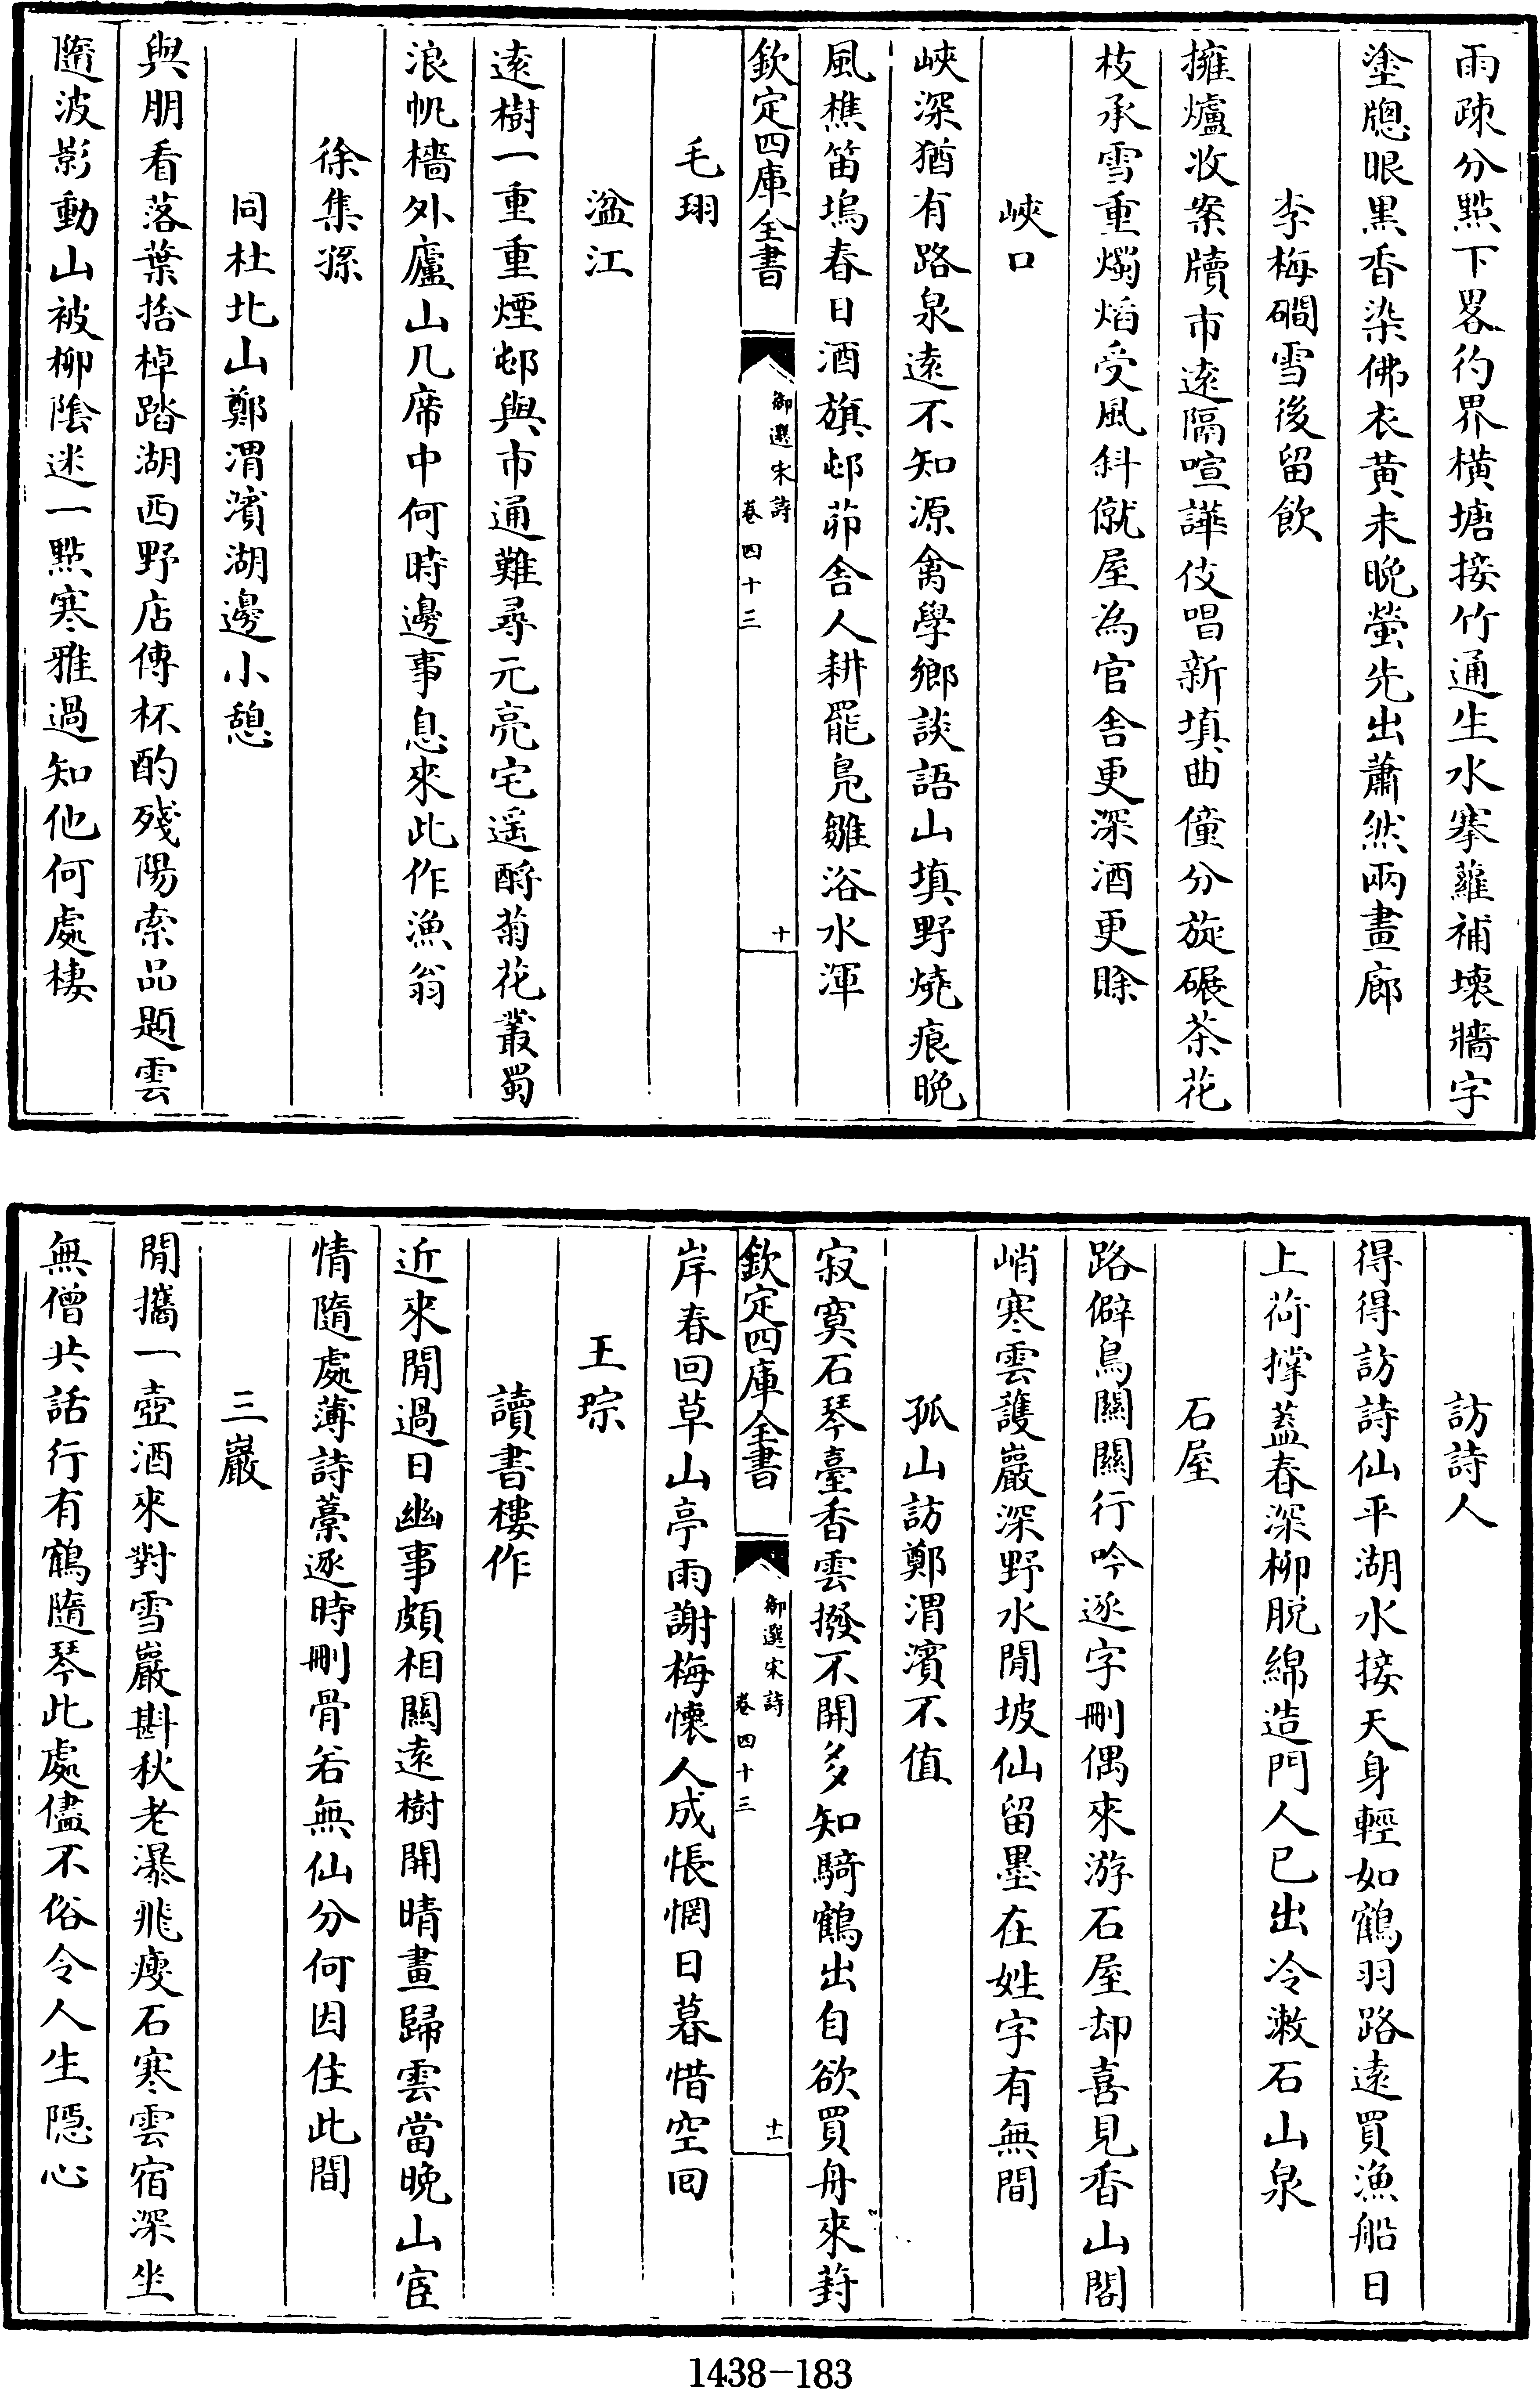 雨疎分點下畧彴界橫塘接竹通生水搴蘿補壞牆字
塗牕眼黑香染佛衣黄未晚螢先出蕭然兩畫廊
李梅磵雪後留飲
擁爐收案牘市遠隔喧譁伎唱新填曲僮分旋碾茶花
枝承雪重燭焰受風斜僦屋為官舍更深酒更賒
峽口
峽深猶有路泉遠不知源禽學鄉談語山填野燒痕晚
風樵笛塢春日酒旗邨茆舍人耕罷鳬雛浴水渾
欽定四庫全書
御選宋詩
卷四十三
十
毛珝
湓江
遠樹一重重煙邨與市通難尋元亮宅遥酹菊花叢蜀
浪帆檣外廬山几席中何時邊事息來此作漁翁
徐集孫
同杜北山鄭渭濱湖邊小憩
與朋看落葉捨棹踏湖西野店傳杯酌殘陽索品題雲
隨波影動山被柳陰迷一點寒雅過知他何處棲
訪詩人
得得訪詩仙平湖水接天身輕如鶴羽路遠買漁船日
上荷撑蓋春深柳脱綿造門人已出冷漱石山泉
石屋
路僻鳥關關行吟逐字刪偶來游石屋却喜見香山閣
峭寒雲護巖深野水閒坡仙留墨在姓字有無間
孤山訪鄭渭濱不值
寂寞石琴臺香雲撥不開多知騎鶴出自欲買舟來葑
欽定四庫全書
御選宋詩
卷四十三
十一
岸春回草山亭雨謝梅懷人成悵惘日暮惜空回
王琮
讀書樓作
近來閒過日幽事頗相關遠樹開晴畫歸雲當晚山宦
情隨處薄詩藁逐時刪骨若無仙分何因住此間
三巖
閒攜一壺酒來對雪巖斟秋老瀑飛瘦石寒雲宿深坐
無僧共話行有鶴隨琴此處儘不俗令人生隱心
1438-183